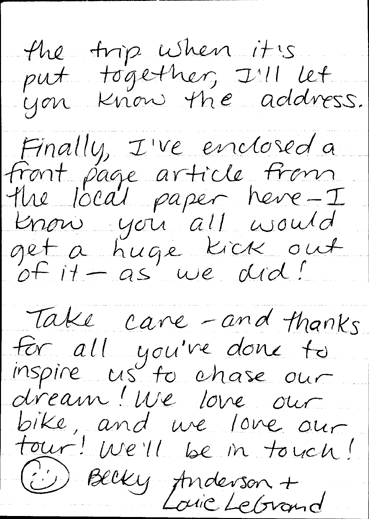 the trip when it's
put together, I'll let
you know the address.
Finally, I've enclosed a
front page article from
the local paper here - I
know you all would
get a huge kick out
of it - as we did!
Take care - and thanks
for all you've done to
inspire us to chase our
dream! We love our
bike, and we love our
tour! We'll be in touch!
Becky Anderson +
Louie LeGrand